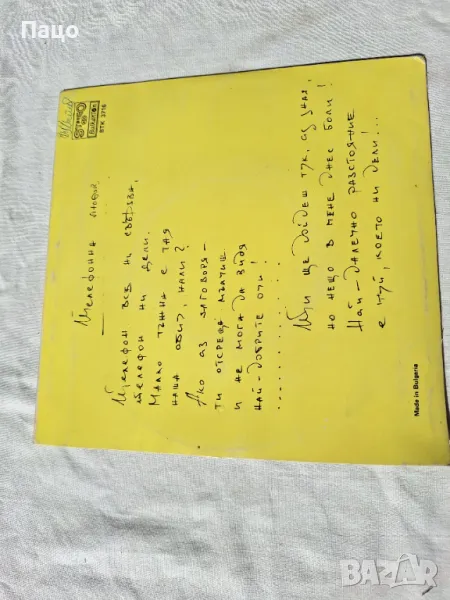 Пацо
Balkanton
ВТК 3716
Телефонна любов
Телефон все ни свързва,
телефон ни дели.
Малко тъжна е тая
наша обич, нали?
Ако аз заговоря –
ти отсреща мълчиш
и не мога да видя
най-добрите очи!
Ти ще дойдеш тук, аз зная,
но нещо в мене днес боли!
Най-далечно разстояние
е туй, което ни дели!...
Made in Bulgaria
BAZAR